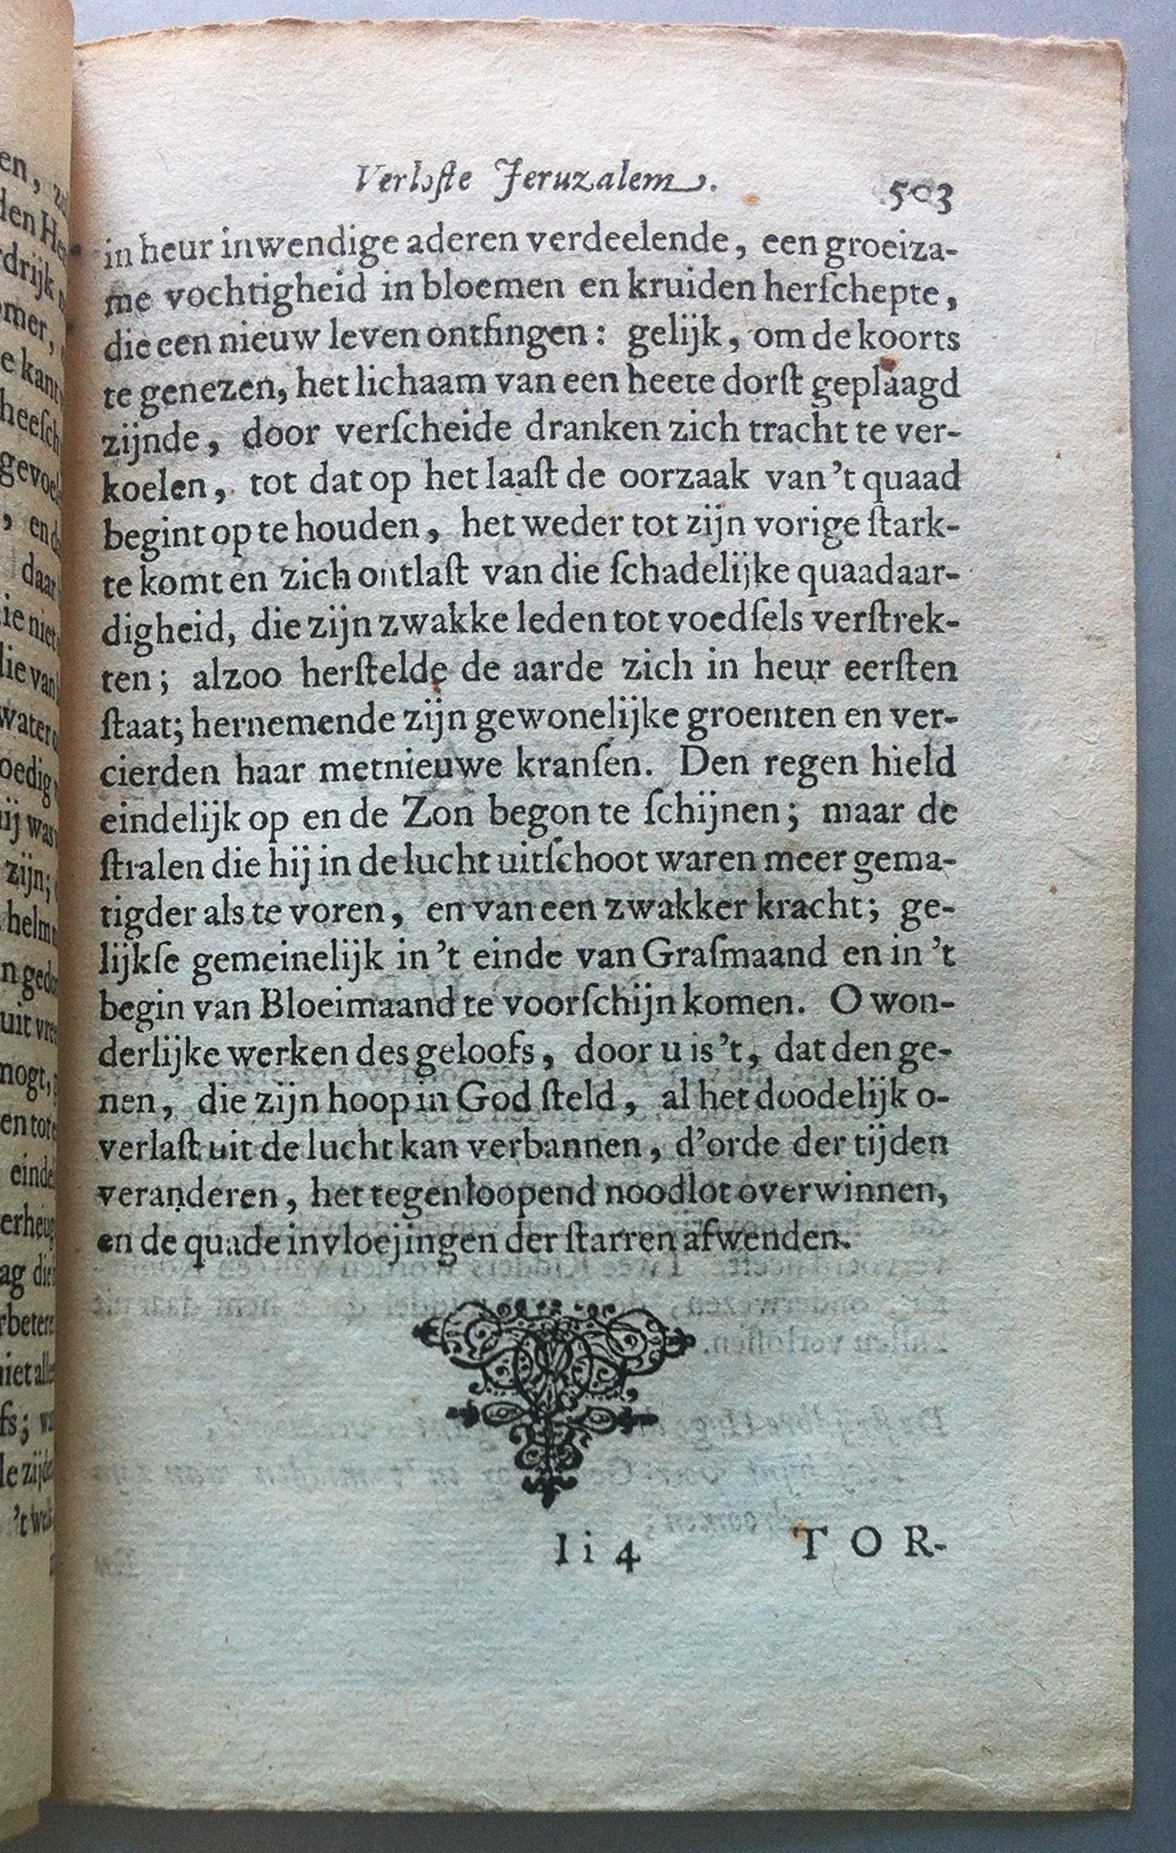 Verloſte Jeruzalem. 503
in heur inwendige aderen verdeelende, een groeiza-
me vochtigheid in bloemen en kruiden herſchepte,
die een nieuw leven ontfingen: gelijk, om de koorts
te genezen, het lichaam van een heete dorſt geplaagd
zijnde, door verſcheide dranken zich tracht te ver-
koelen, tot dat op het laaſt de oorzaak van 't quaad
begint op te houden, het weder tot zijn vorige ſtark-
te komt en zich ontlaſt van die ſchadelijke quaadaar-
digheid, die zijn zwakke leden tot voedſels verſtrek-
ten; alzoo herſtelde de aarde zich in heur eerſten
ſtaat; hernemende zijn gewonelijke groenten en ver-
cierden haar met nieuwe kranſen. Den regen hield
eindelijk op en de Zon begon te ſchijnen; maar de
ſtralen die hij in de lucht uitſchoot waren meer gema-
tigder als te voren, en van een zwakker kracht; ge-
lijkſe gemeinelijk in 't einde van Graſmaand en in 't
begin van Bloeimaand te voorſchijn komen. O won-
derlijke werken des geloofs, door u is 't, dat den ge-
nen, die zijn hoop in God ſteld, al het doodelijk o-
verlaſt uit de lucht kan verbannen, d'orde der tijden
veranderen, het tegenloopend noodlot overwinnen,
en de quade invloejingen der ſtarren afwenden.
Ii 4 TOR-